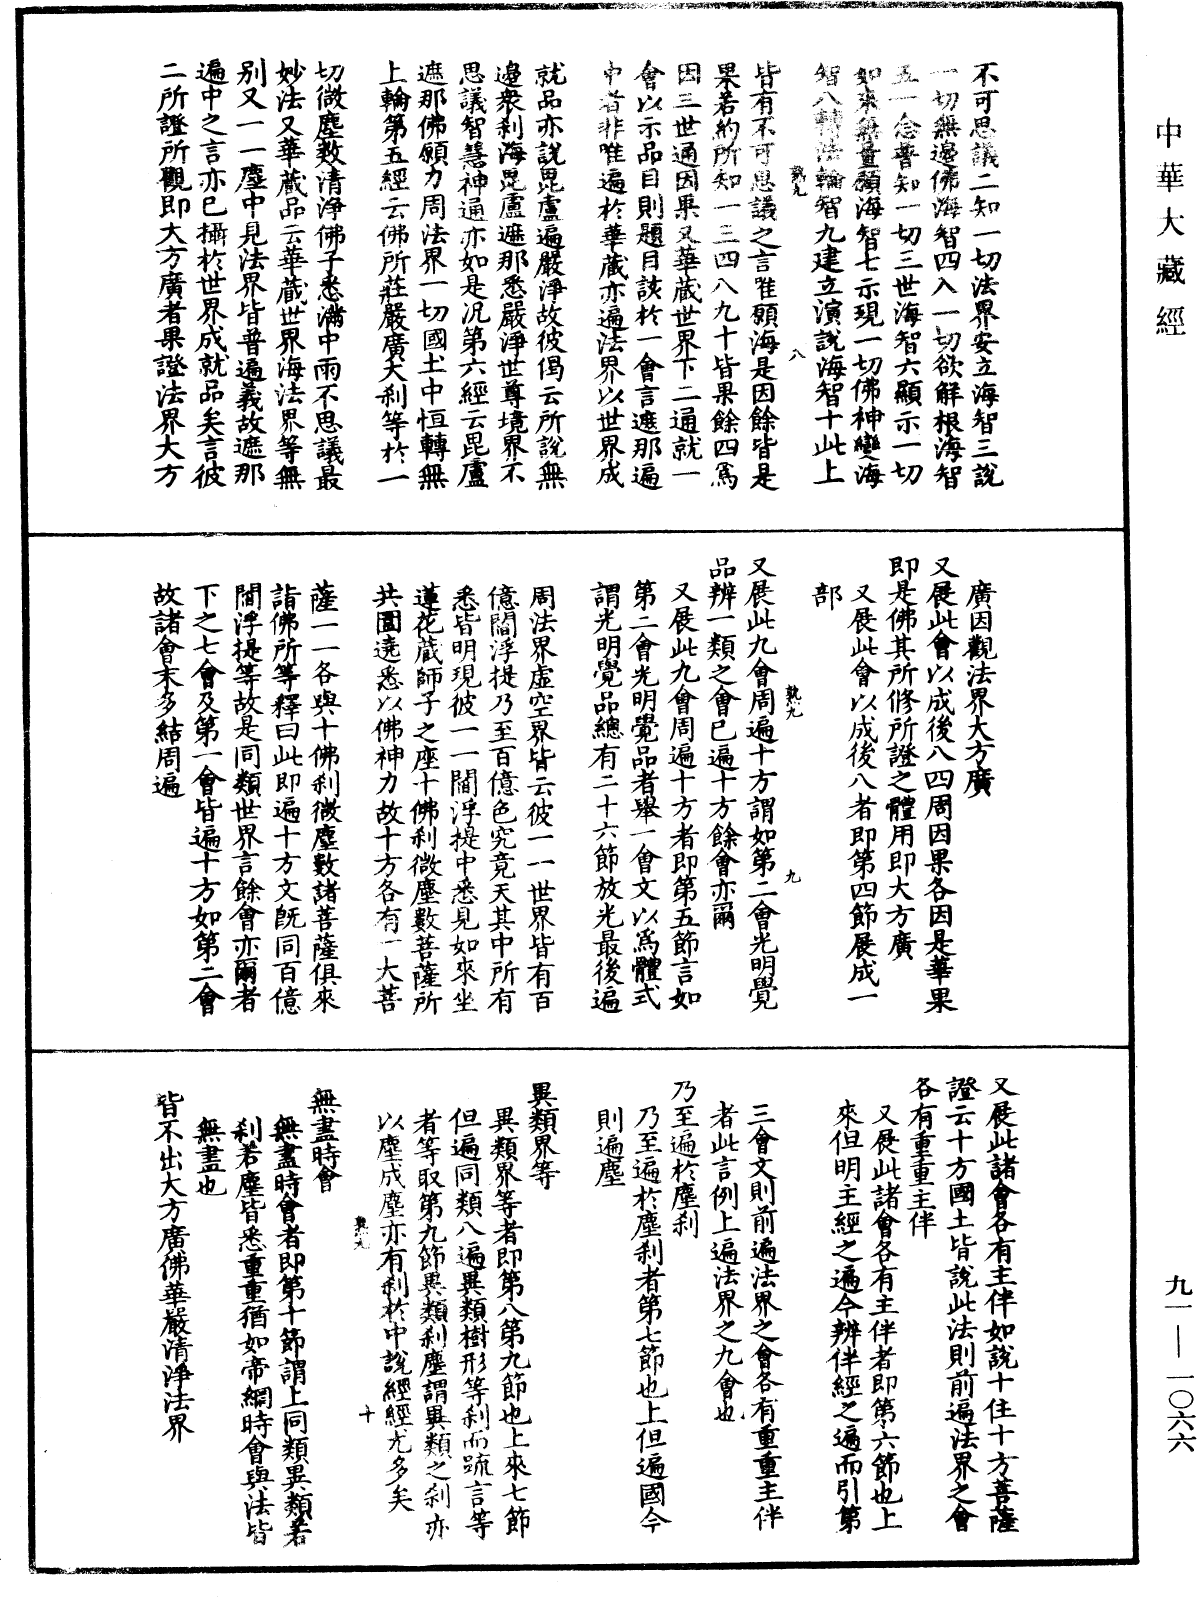 中華大藏經
不可思議二知一切法界安立海智三說
一切無邊佛海智四入一切欲解根海智
五一念普知一切三世海智六顯示一切
如來無量願海智七示現一切佛神變海
智八轉法輪智九建立演說海智十此上
執九
八
皆有不可思議之言唯願海是因餘皆是
果若約所知一三四八九十皆果餘四為
因三世通因果又華藏世界下二通就一
會以示品目則題目該於一會言遮那遍
中者非唯遍於華藏亦遍法界以世界成
就品亦說毘盧遍嚴淨故彼偈云所說無
邊衆刹海毘盧遮那悉嚴淨世尊境界不
思議智慧神通亦如是況第六經云毘盧
遮那佛願力周法界一切國土中恒轉無
上輪第五經云佛所莊嚴廣大刹等於一
切微塵數清淨佛子悉滿中雨不思議最
妙法又華藏品云華藏世界海法界等無
别又一一塵中見法界皆普遍義故遮那
遍中之言亦已攝於世界成就品矣言彼
二所證所觀即大方廣者果證法界大方
廣因觀法界大方廣
又展此會以成後八四周因果各因是華果
即是佛其所修所證之體用即大方廣
又展此會以成後八者即第四節展成一
部
執九
九
又展此九會周遍十方謂如第二會光明覺
品辨一類之會已遍十方餘會亦爾
又展此九會周遍十方者即第五節言如
第二會光明覺品者舉一會文以為體式
謂光明覺品總有二十六節放光最後遍
周法界虛空界皆云彼一一世界皆有百
億閻浮提乃至百億色究竟天其中所有
悉皆明現彼一一閻浮提中悉見如來坐
蓮花藏師子之座十佛刹微塵數菩薩所
共圍遶悉以佛神力故十方各有一大菩
薩一一各與十佛刹微塵數諸菩薩俱來
詣佛所等釋曰此即遍十方文既同百億
閻浮提等故是同類世界言餘會亦爾者
下之七會及第一會皆遍十方如第二會
故諸會末多結周遍
又展此諸會各有主伴如說十住十方菩薩
證云十方國土皆說此法則前遍法界之會
各有重重主伴
又展此諸會各有主伴者即第六節也上
來但明主經之遍今辨伴經之遍而引第
三會文則前遍法界之會各有重重主伴
者此言例上遍法界之九會也
乃至遍於塵刹
乃至遍於塵刹者第七節也上但遍國今
則遍塵
異類界等
異類界等者即第八第九節也上來七節
但遍同類八遍異類樹形等刹而䟽言等
者等取第九節異類刹塵謂異類之刹亦
以塵成塵亦有刹於中說經經尤多矣
執九
十
無盡時會
無盡時會者即第十節謂上同類異類若
刹若塵皆悉重重猶如帝網時會與法皆
無盡也
皆不出大方廣佛華嚴清淨法界
九一—一〇六六